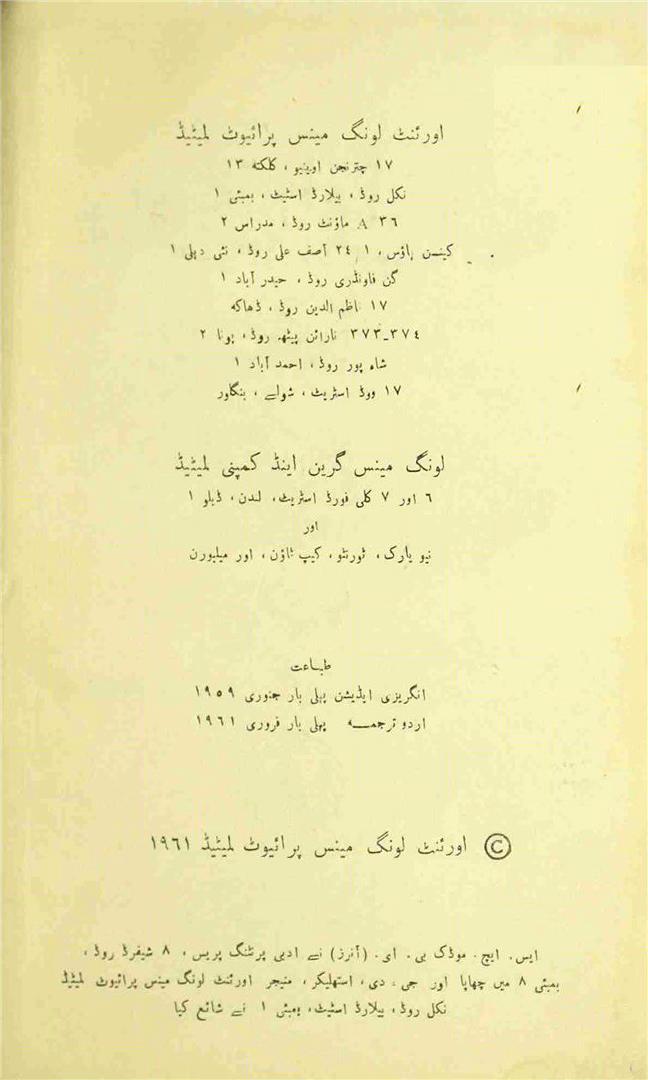 اورئنٹ لونگ مینس پرائیوٹ لمیٹیڈ
۱۷ چترنجن اوینیو ، کلکتہ ۱۳
نکل روڈ ، بیلارڈ اسٹیٹ ، بمبئی ۱
۳۶ A ماؤنٹ روڈ ، مدراس ۲
کینسن ہاؤس ، ۱ ٫ ۲٤ آصف علی روڈ ، نئی دہلی ۱
گن فاونڈری روڈ ، حیدر آباد ۱
۱۷ ناظم الدین روڈ ، ڈھاکہ
۳۷۳-۳۷٤ نارائن پیٹھ روڈ ، پونا ۲
شاہ پور روڈ ، احمد آباد ۱
۱۷ ووڈ اسٹریٹ ، شولے ، بنگلور
لونگ مینس گرین اینڈ کمپنی لمیٹیڈ
٦ اور ۷ کلی فورڈ اسٹریٹ ، لندن ، ڈبلو ۱
اور
نیو یارک ، ٹورنٹو ، کیپ ٹاؤن ، اور میلبورن
طباعت
انگریزی ایڈیشن پہلی بار جنوری ۱۹۵۹
اردو ترجمہ پہلی بار فروری ۱۹٦۱
© اورئنٹ لونگ مینس پرائیوٹ لمیٹیڈ ۱۹٦۱
ایس . ایچ . موڈک بی . ای . (آنرز) نے ادبی پرنٹنگ پریس ، ۸ شیفرڈ روڈ ،
بمبئی ۸ میں چھاپا اور جی ، دی ، استھلیکر ، منیجر اورئنٹ لونگ مینس پرائیوٹ لمیٹیڈ
نکل روڈ ، بیلارڈ اسٹیٹ ، بمبئی ۱ نے شائع کیا